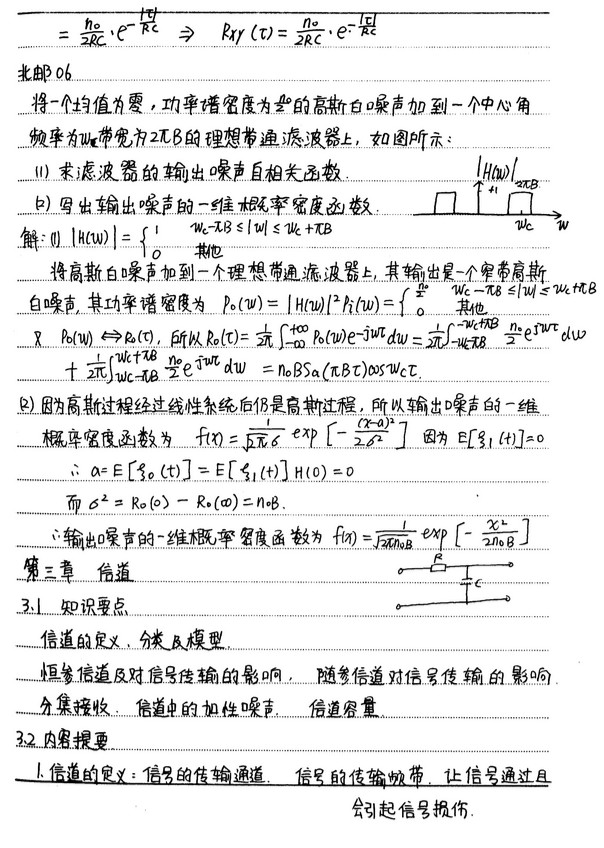 = n₀/2RC · e^(-|τ|/RC) ⇒ Rxy(τ) = n₀/2RC · e^(-|τ|/RC)
北邮06
将一个均值为零，功率谱密度为n₀/2的高斯白噪声加到一个中心角
频率为wc带宽为2πB的理想带通滤波器上，如图所示：
(1) 求滤波器的输出噪声自相关函数.
(2) 写出输出噪声的一维概率密度函数.
|H(w)|
2πB
+1
wc
w
解：(1) |H(w)| = { 1 wc-πB≤|w|≤wc+πB
0 其他
将高斯白噪声加到一个理想带通滤波器上，其输出是一个窄带高斯
白噪声，其功率谱密度为 Po(w) = |H(w)|²Pi(w) = { n₀/2 wc-πB≤|w|≤wc+πB
0 其他
又 Po(w) ⇔ Ro(τ)，所以Ro(τ) = 1/2π ∫_{-∞}^{+∞} Po(w)e^{-jwτ}dw = 1/2π ∫_{-wc-πB}^{-wc+πB} n₀/2 e^{jwτ} dw
+ 1/2π ∫_{wc-πB}^{wc+πB} n₀/2 e^{jwτ} dw = n₀BSa(πBτ)coswcτ.
(2) 因为高斯过程经过线性系统后仍是高斯过程，所以输出噪声的一维
概率密度函数为 f(x) = 1/√2π6 exp[-(x-a)²/26²] 因为 E[ξ₁(t)]=0
∴ a=E[ξ₀(t)] = E[ξ₁(t)]H(0) = 0
而 6² = Ro(0) - Ro(∞) = n₀B.
∴输出噪声的一维概率密度函数为 f(x) = 1/√2πn₀B exp[-x²/2n₀B]
第三章 信道
R
C
3.1 知识要点
信道的定义、分类及模型.
恒参信道及对信号传输的影响， 随参信道对信号传输的影响.
分集接收. 信道中的加性噪声. 信道容量.
3.2 内容提要
1. 信道的定义：信号的传输通道. 信号的传输频带. 让信号通过且
会引起信号损伤.